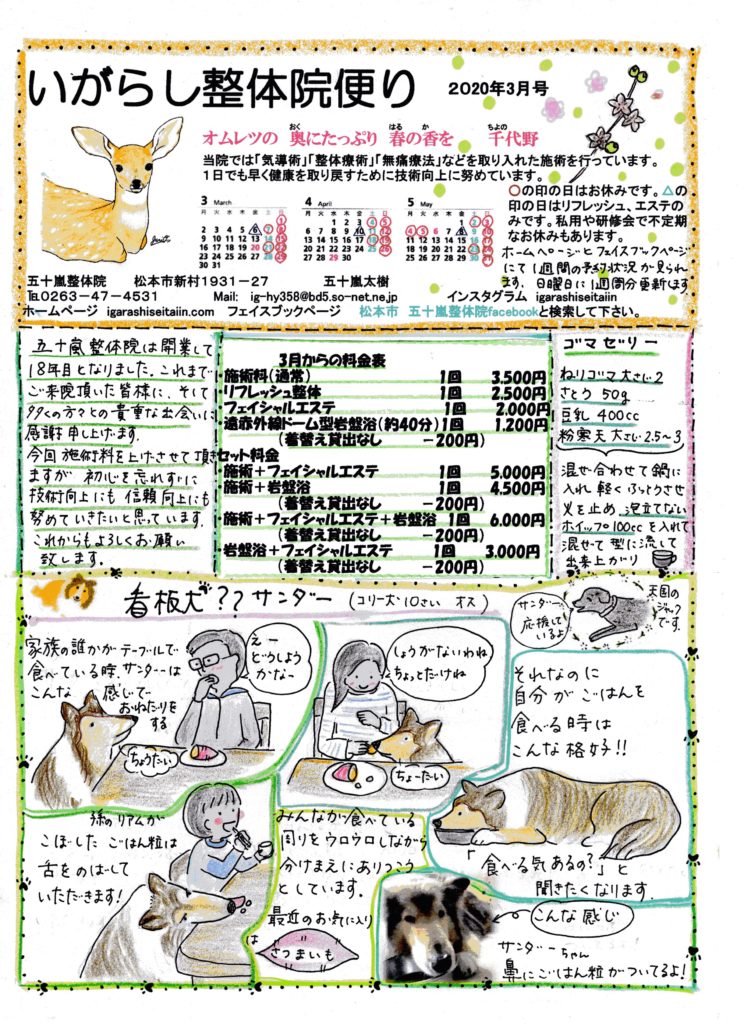 いがらし整体院便り 2020年3月号
オムレツの 奥にたっぷり 春の香を 千代野
おく はる か ちよの
当院では「気導術」「整体療術」「無痛療法」などを取り入れた施術を行っています。
1日でも早く健康を取り戻すために技術向上に努めています。
3 March
月 火 水 木 金 土 日
1
2 3 4 5 6 7 8
9 10 11 12 13 14 15
16 17 18 19 20 21 22
23 24 25 26 27 28 29
30 31
4 April
月 火 水 木 金 土 日
1 2 3 4 5
6 7 8 9 10 11 12
13 14 15 16 17 18 19
20 21 22 23 24 25 26
27 28 29 30
5 May
月 火 水 木 金 土 日
1 2 3
4 5 6 7 8 9 10
11 12 13 14 15 16 17
18 19 20 21 22 23 24
25 26 27 28 29 30 31
○の印の日はお休みです。△の
印の日はリフレッシュ、エステの
みです。私用や研修会で不定期
なお休みもあります。
ホームページとフェイスブックページ
にて1週間の予約状況が見られ
ます。日曜日に1週間分更新します
五十嵐整体院 松本市新村1931－27 五十嵐太樹
℡0263－47－4531 Mail: ig-hy358@bd5.so-net.ne.jp インスタグラム igarashiseitaiin
ホームページ igarashiseitaiin.com フェイスブックページ 松本市 五十嵐整体院facebookと検索して下さい。
五十嵐整体院は開業して
18年目となりました。これまで
ご来院頂いた皆様に、そして
多くの方々との貴重な出会いに
感謝申し上げます。
今回施術料を上げさせて頂き
ますが 初心を忘れずに
技術向上にも信頼向上にも
努めていきたいと思っています。
これからもよろしくお願い
致します。
3月からの料金表
施術料(通常) 1回 3.500円
リフレッシュ整体 1回 2.500円
フェイシャルエステ 1回 2.000円
遠赤外線ドーム型岩盤浴(約40分) 1回 1.200円
(着替え貸出なし －200円)
セット料金
施術＋フェイシャルエステ 1回 5.000円
施術＋岩盤浴 1回 4.500円
(着替え貸出なし －200円)
施術＋フェイシャルエステ＋岩盤浴 1回 6.000円
(着替え貸出なし －200円)
岩盤浴＋フェイシャルエステ 1回 3.000円
(着替え貸出なし －200円)
ゴマゼリー
ねりゴマ大さい2
さとう 50g
豆乳 400cc
粉寒天 大さい2.5～3
混ぜ合わせて鍋に
入れ 軽くふっとうさせ
火を止め、泡立てない
ホイップ100ccを入れて
混ぜて型に流して
出来上がり
看板犬??サンダー (コリー犬10さい オス)
サンダー
応援して
いるよ
天国の
ジャック
です。
家族の誰かがテーブルで
食べている時、サンダーは
こんな 感じで
おねだりを
する
えー
どうしよう
かなー
ちょうだい
しょうがないわね
ちょっとだけね
ちょーだい
それなのに
自分がごはんを
食べる時は
こんな格好!!
「食べる気あるの?」と
聞きたくなります。
孫のリアムが
こぼした ごはん粒は
舌をのばして
いただきます!
みんなが食べている
周りをウロウロしながら
分けまえにありつこう
としています。
最近のお気に入り
は さつまいも
こんな感じ
サンダーちゃん
鼻にごはん粒がついてるよ!